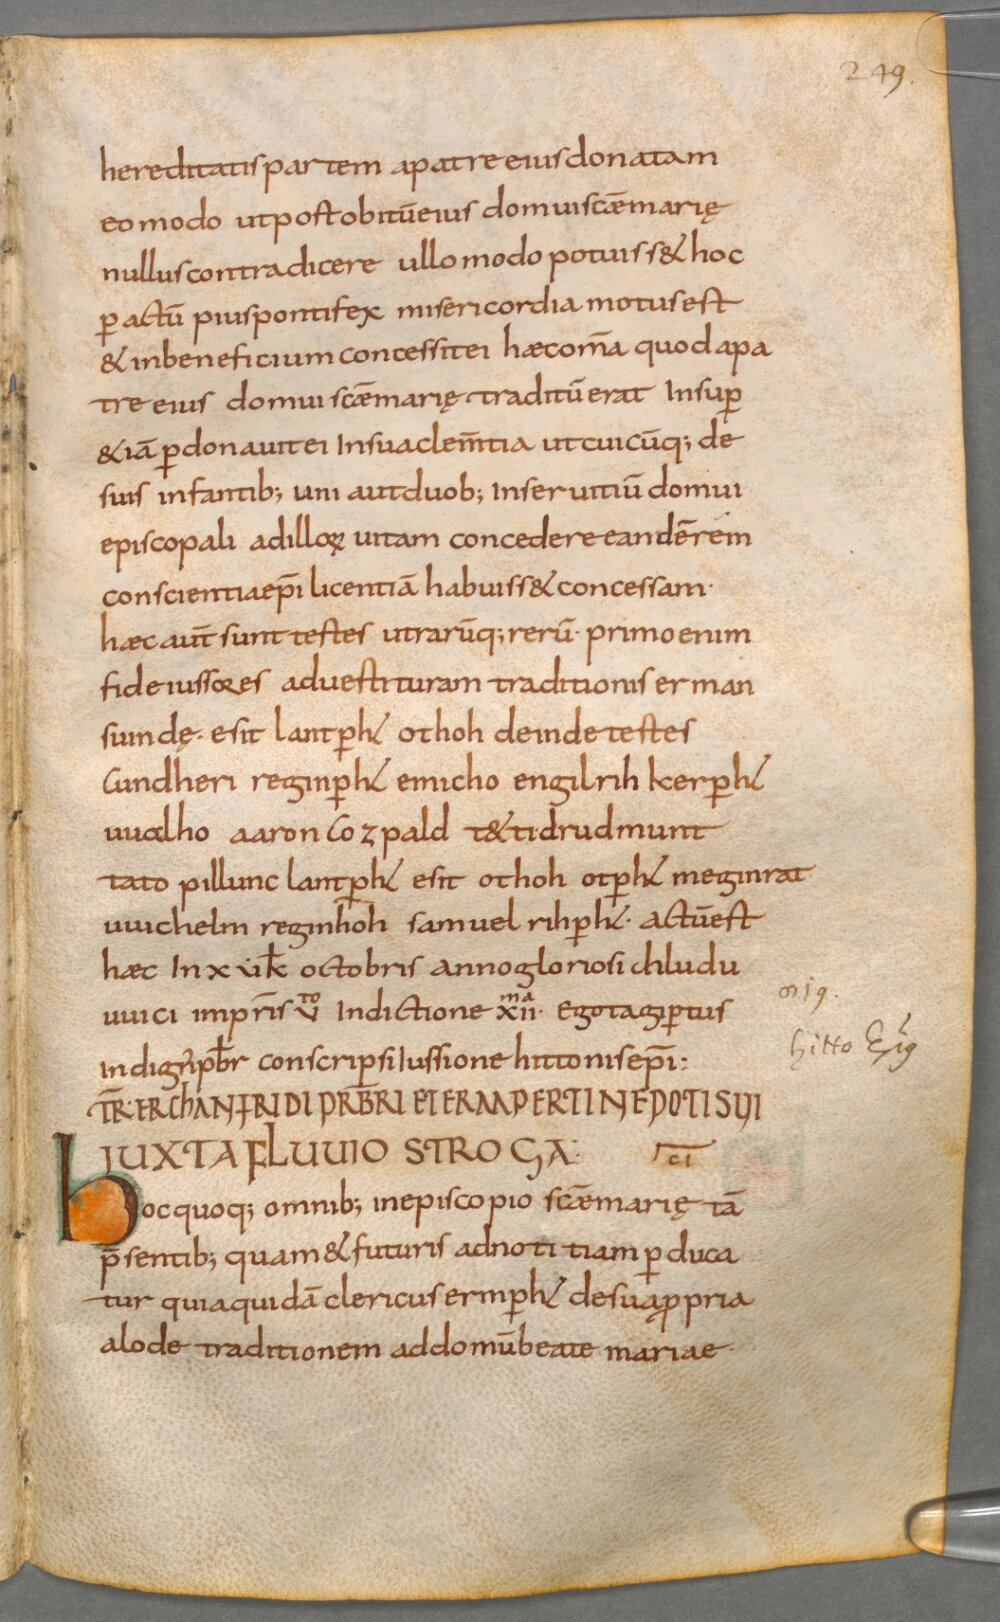 249.
hereditatis partem a patre eius donatam
eo modo ut post obitū eius domui scǣ marię
nullus contradicere ullo modo potuiss& hoc
ꝑactū pius pontifex misericordia motus est
& in beneficium concessit ei hæc om̄a quod a pa
tre eius domui scǣ marię traditū erat Insuꝑ
&iā ꝑdonauit ei In sua clem̄tia ut cuicūq; de
suis infantib; uni aut duob; In seruitiū domui
episcopali ad illoꝝ uitam concedere eandē rem
conscientia ep̄i licentiā habuiss& concessam·
hæc aut̄ sunt testes utrarūq; rerū· primo enim
fideiussores ad uestituram traditionis erman
suindę· esit lantꝑħ othoh deinde testes
Cundheri reginꝑħ emicho engilrih kerꝑħ
uualho aaron Cozpald t&ti drudmunt
tato pillunc lantꝑħ esit othoh otꝑħ meginrat
uuichelm reginhoh samuel rihꝑħ· actū est
hæc In xvi k̄ octobris anno gloriosi chludu
uuici imꝑr̄is v̊ᵗᵒ Indictione xiiᵐᵃ· Ego tagiꝑtus
indign̄ pb̄r conscripsi Iussione hittonis ep̄i:
819.
hitto Ep̄ig
TR̄· ERChANFRIDI PRB̄RI ET ERMPERTI NEPOTI SUI
JUXTA FLUUIO STROGA· c̄i
hoc quoq; omnib; in episcopio scǣ marię tā
p̄sentib; quam & futuris ad notitiam ꝑduca
tur quia quidā clericus ermꝑħ de sua ꝓpria
alode traditionem ad domū beate mariae·